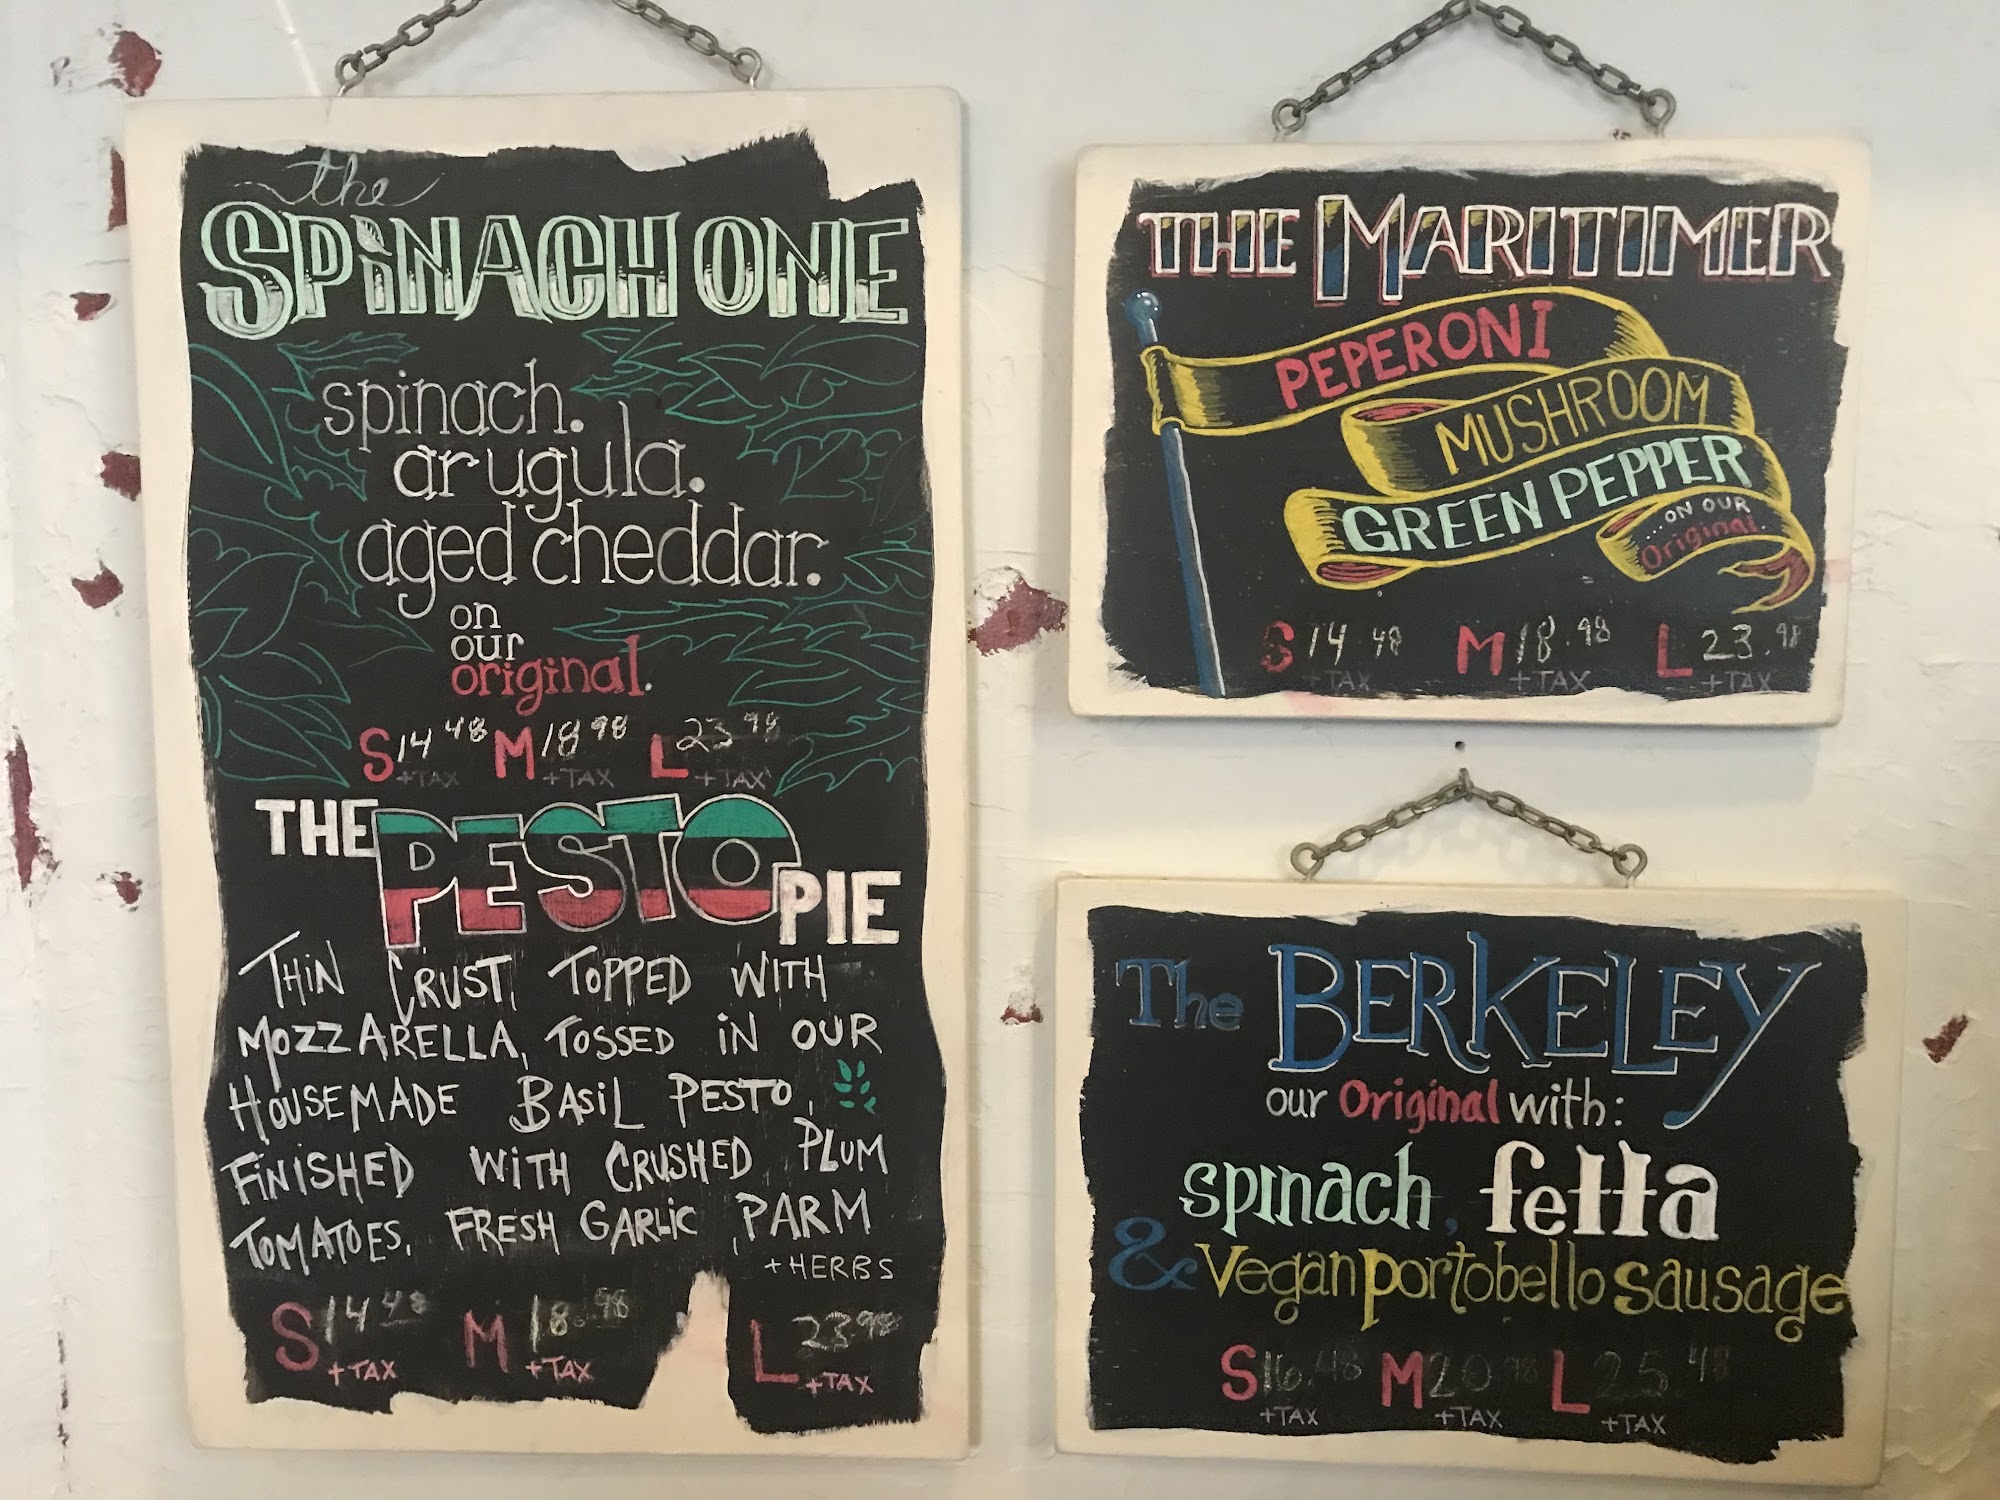 the
SPINACH ONE
spinach.
arugula.
aged cheddar.
on
our
original.
S 14 48 M 18 98 L 23 98
+TAX +TAX +TAX
THE PESTO PIE
THIN CRUST, TOPPED WITH
MOZZARELLA, TOSSED IN OUR
HOUSEMADE BASIL PESTO,
FINISHED WITH CRUSHED PLUM
TOMATOES, FRESH GARLIC, PARM
+ HERBS
S 14 48 M 18.98 L 23.98
+TAX +TAX +TAX
THE MARITIMER
PEPERONI
MUSHROOM
GREEN PEPPER
...ON OUR
Original.
S 14.48 M 18.98 L 23.98
+TAX +TAX +TAX
The BERKELEY
our Original with:
spinach, fetta
& Vegan portobello sausage
S 16.48 M 20.98 L 25.48
+TAX +TAX +TAX